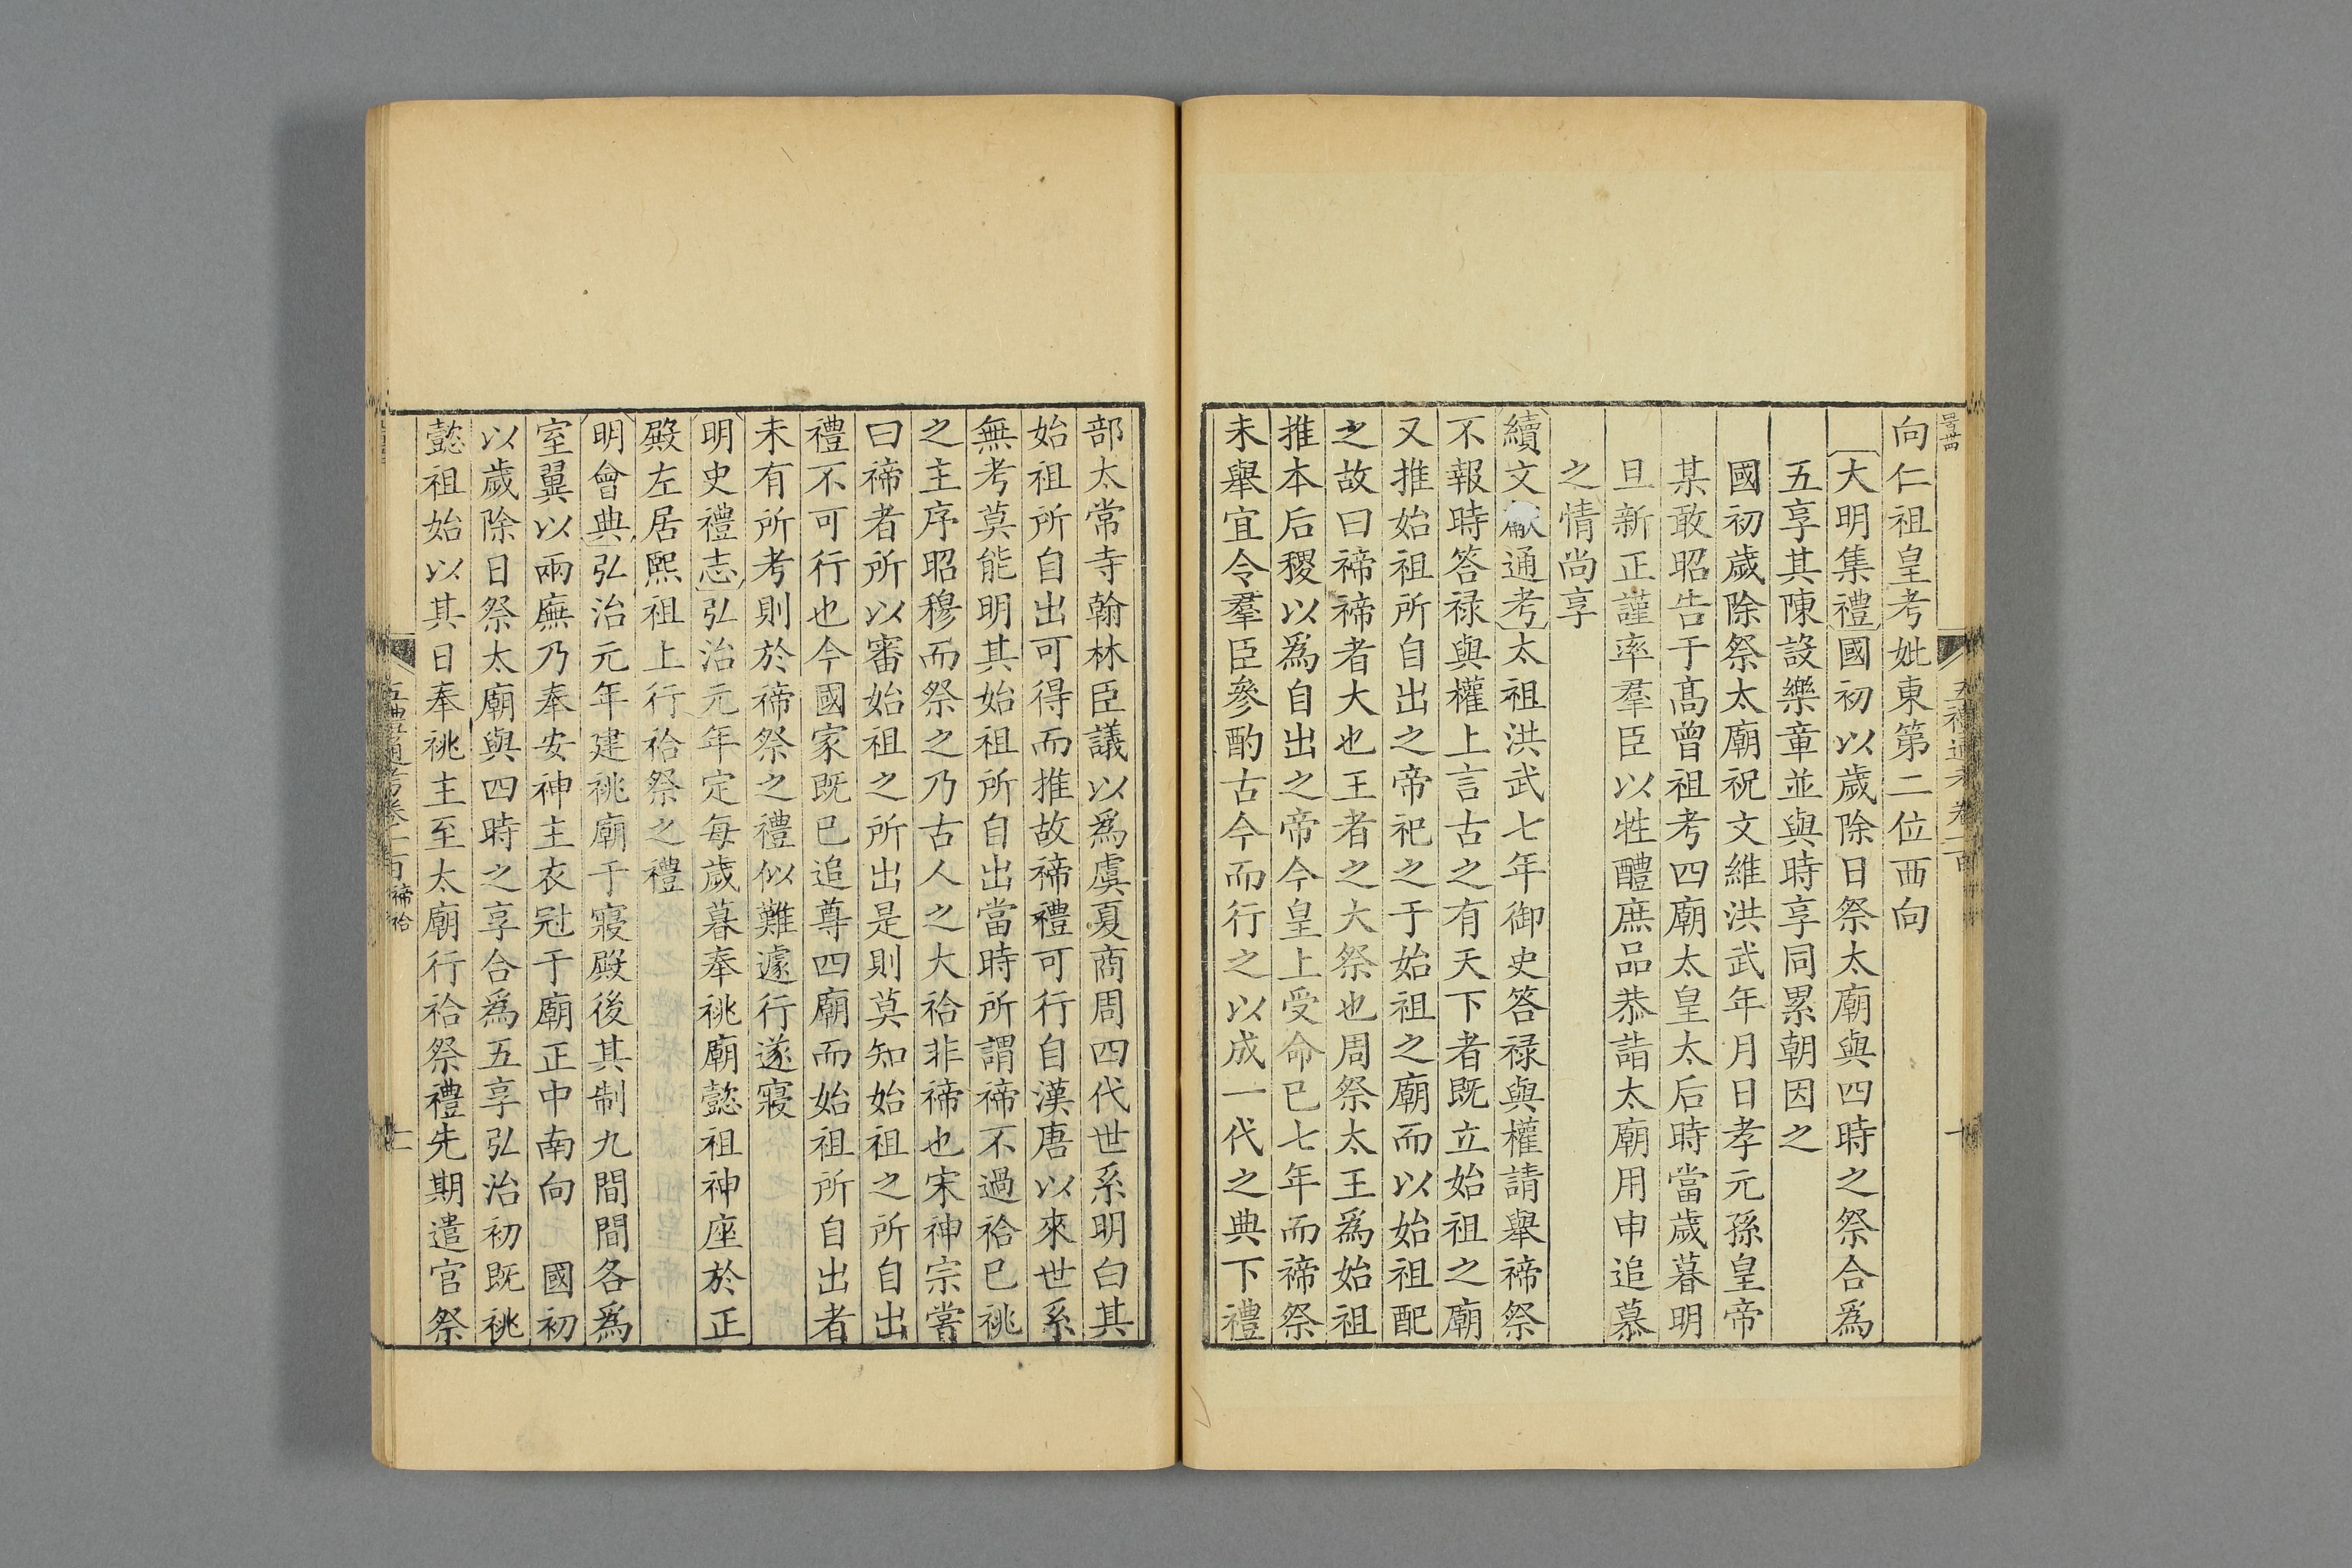 向仁祖皇考妣東第二位西向
大明集禮國初以歲除日祭太廟與四時之祭合爲
五享其陳設樂章並與時享同累朝因之
國初歲除祭太廟祝文維洪武年月日孝元孫皇帝
某敢昭告于高曾祖考四廟太皇太后時當歲暮明
旦新正謹率羣臣以牲醴庶品恭詣太廟用申追慕
之情尚享
續文獻通考太祖洪武七年御史答禄與權請舉禘祭
不報時答禄與權上言古之有天下者既立始祖之廟
又推始祖所自出之帝祀之于始祖之廟而以始祖配
之故曰禘禘者大也王者之大祭也周祭太王爲始祖
推本后稷以爲自出之帝今皇上受命已七年而禘祭
未舉宜令羣臣參酌古今而行之以成一代之典下禮
部太常寺翰林臣議以爲虞夏商周四代世系明白其
始祖所自出可得而推故禘禮可行自漢唐以來世系
無考莫能明其始祖所自出當時所謂禘不過祫已祧
之主序昭穆而祭之乃古人之大祫非禘也宋神宗嘗
曰禘者所以審始祖之所出是則莫知始祖之所自出
禮不可行也今國家既已追尊四廟而始祖所自出者
未有所考則於禘祭之禮似難遽行遂寢
明史禮志弘治元年定每歲暮奉祧廟懿祖神座於正
殿左居熙祖上行祫祭之禮
明會典弘治元年建祧廟于寢殿後其制九間間各爲
室翼以兩廡乃奉安神主衣冠于廟正中南向　國初
以歲除日祭太廟與四時之享合爲五享弘治初既祧
懿祖始以其日奉祧主至太廟行祫祭禮先期遣官祭
五禮通考卷一百 禘祫